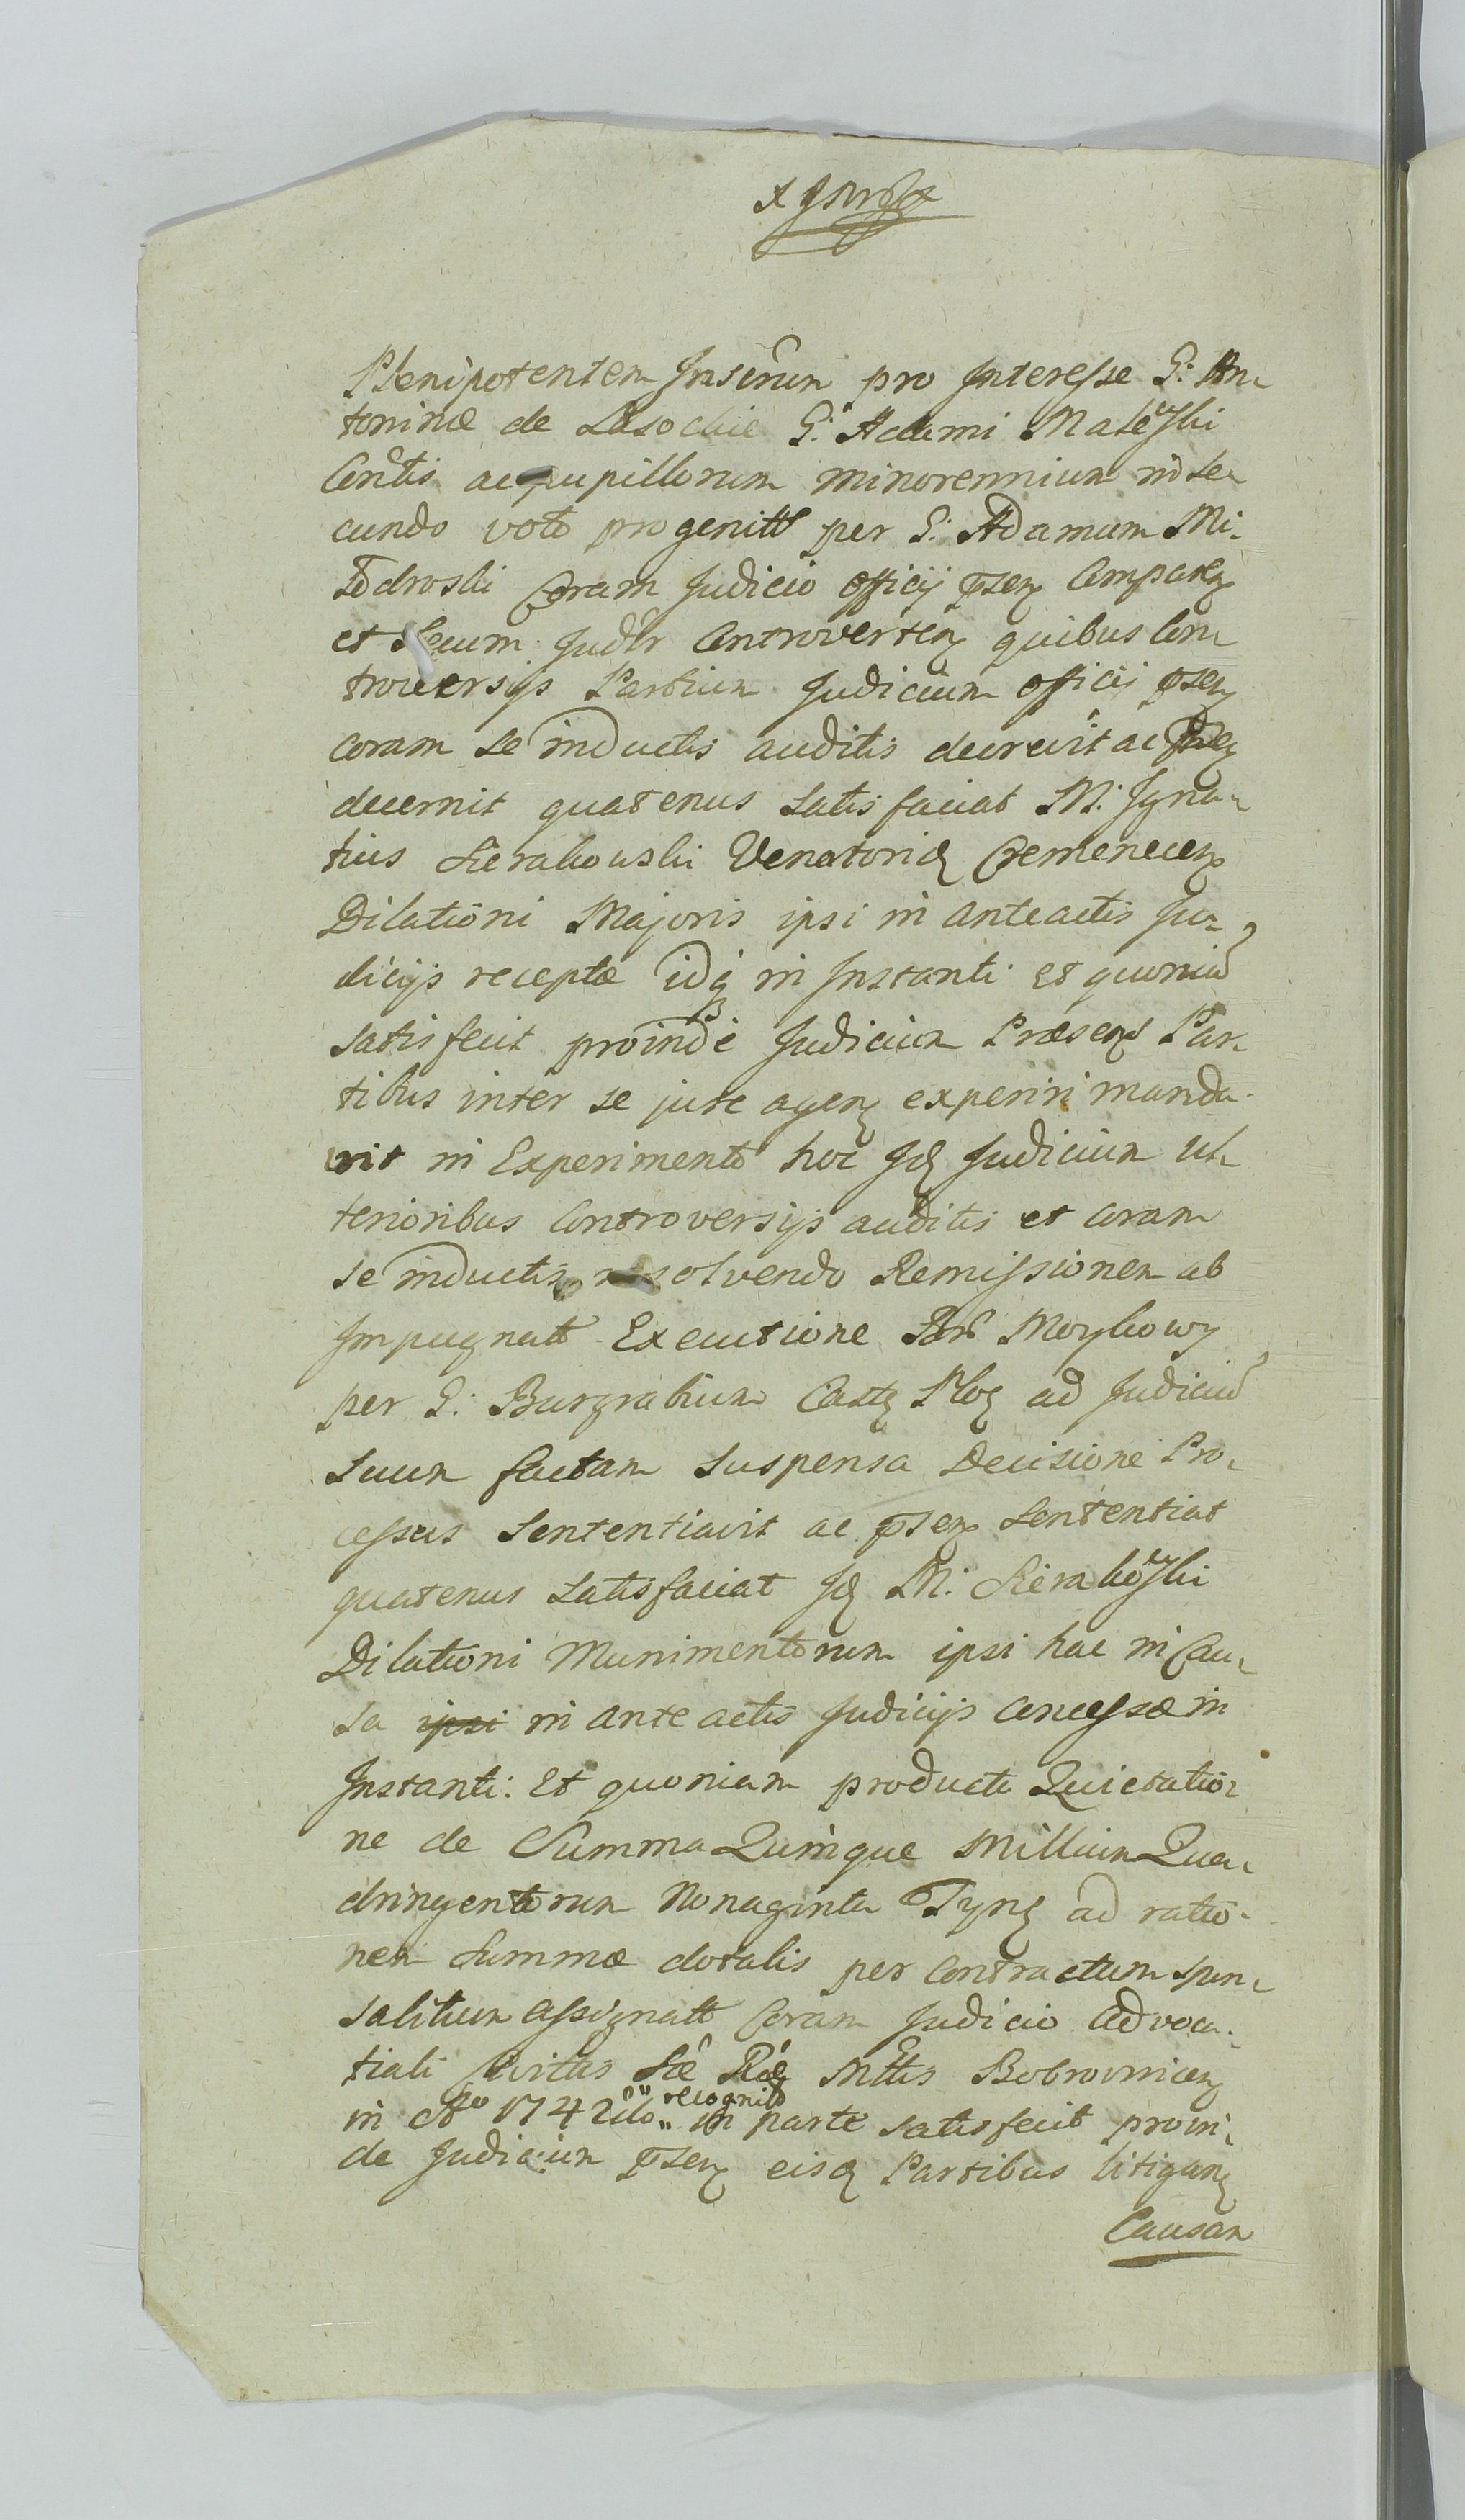 Plenipotentem Inserum pro Interesse G: An
toninæ de Lasockie G: Adami Malewski
Contis ac pupillorum minorennium in se
cundo voto progenitt per G: Adamum Mi
Coram Judicio Officij pseñ Comparen
et secum Judlr Controverten quibus Con
troversijs Partium Judicium officij psen
coram se inductis auditis decrevit ac psen
decernit quatenus satisfaciat M: Igna
tius Sierakowski Venatorid Cremenecen
Dilationi Majoris ipsi in anteactis Ju
dicijs receptæ idq in Instanti et quoniã
satisfecit proinde Judicium Præsens Par
tibus inter se jure agen experiri manda
vit in Experimento hoc Id Judicium Ul
terioribus Controversijs auditis et coram
se inductis resolvendo Remissionem ab
Impugnatt Executione Bon Moykowy
per G: Burgrabium Cast Ploc ad Judiciũ
Suum factam suspensa Decisione Pro
cessus Sententiavit ac psen Sententiat
quatenus Satisfaciat Id M: Sierakowski
Dilationi Munimentorum ipsi hac in Cau
sa ipsi in ante actis Judicijs Concessæ in
Instanti: Et quoniam producta Quietatio
ne de Summa Quinque Millium Qua
dringentorum Nonaginta Tynf ad ratio
nem Summæ dotalis per Contractum spon
salitium assignatt Coram Judicio Advoca
tiali Civitas Sæ Ræ Mttis Bobrovnicen
in Ao 1742do recognito in parte satisfecit proin
de Judicium psen eisd Partibus litigan
Causam